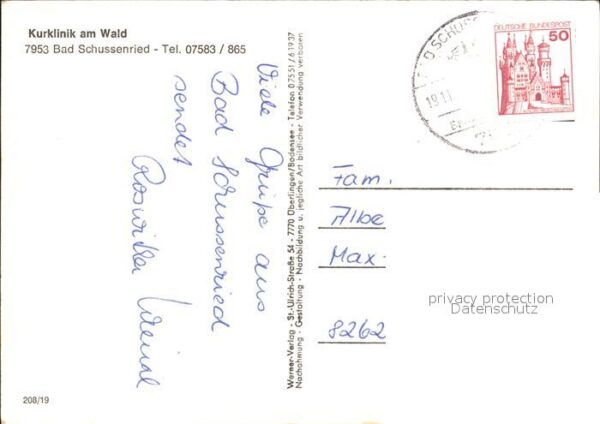 Kurklinik am Wald
7953 Bad Schussenried - Tel. 07583 / 865
Viele Grüße aus
Bad Schussenried
sendet
Roswitha
Werner-Verlag - St.-Ulrich-Straße 54 - 7770 Überlingen/Bodensee - Telefon 07551/61937
Nachahmung - Gestaltung - Nachbildung u. jegliche Art bildlicher Verwendung verboten
DEUTSCHE BUNDESPOST
50
BAD SCHUSS
19.11
Fam.
Albe
Max.
8262
privacy protection
Datenschutz
208/19